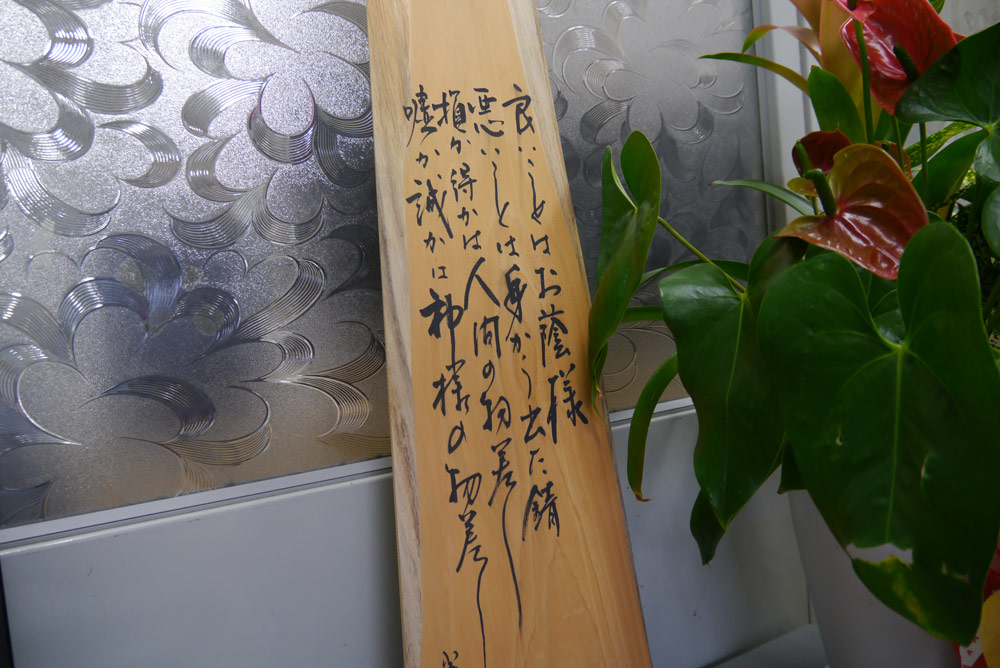 良いことはお蔭様
悪いことは身から出た錆
損か得かは人間の物差し
嘘か誠かは神様の物差し